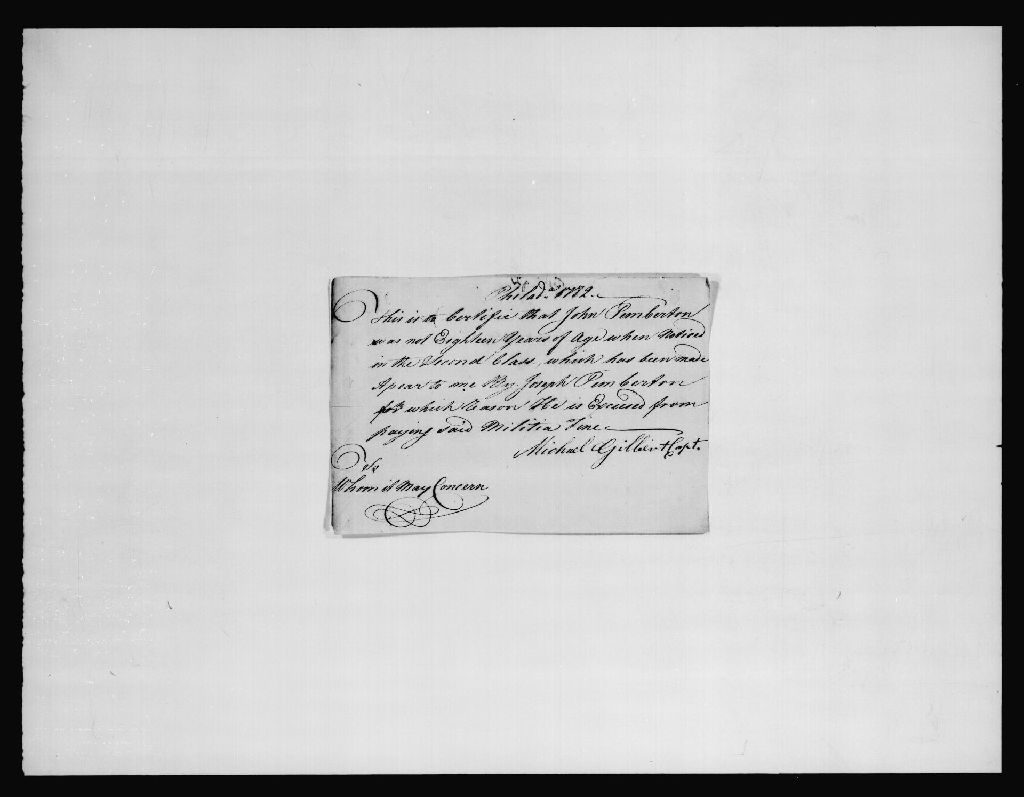 Philada. 1782.
This is to Certifie that John Pemberton
was not Eighteen Years of Age when Noticed
in the Second Class, which has been made
Apear to me By Joseph Pemberton
for which Reason He is Excused from
paying said Militia Fine
Michael Gilbert Capt.
To
Whom it May Concern